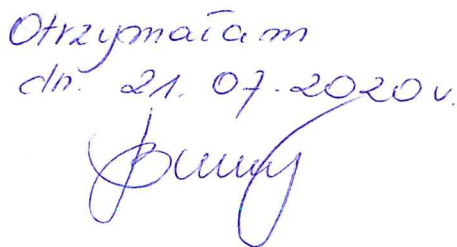 Otrzymałam
dn. 21. 07. 2020 r.